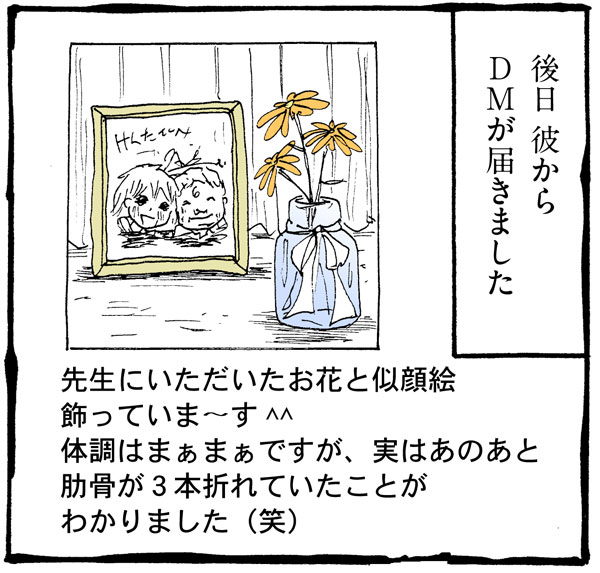 後日 彼から
DMが届きました
けんたいへ
先生にいただいたお花と似顔絵
飾っていま〜す^^
体調はまぁまぁですが、実はあのあと
肋骨が3本折れていたことが
わかりました（笑）